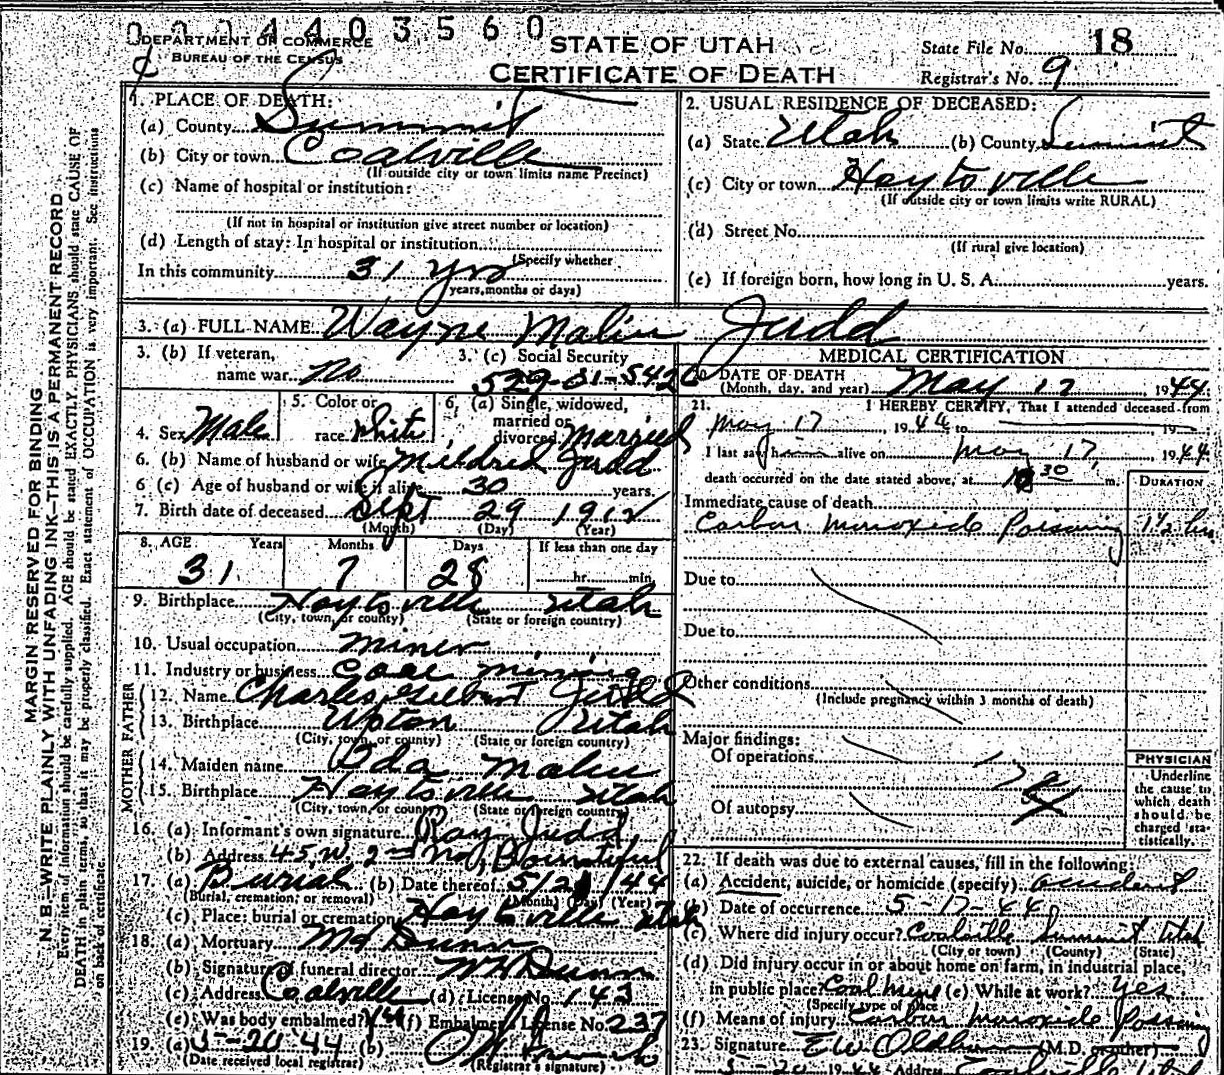 0 0 4 4 0 3 5 6 0
DEPARTMENT OF COMMERCE
BUREAU OF THE CENSUS
STATE OF UTAH
CERTIFICATE OF DEATH
State File No. 18
Registrar's No. 9
MARGIN RESERVED FOR BINDING
N. B.—WRITE PLAINLY WITH UNFADING INK—THIS IS A PERMANENT RECORD.
Every item of information should be carefully supplied. AGE should be stated EXACTLY. PHYSICIANS should state CAUSE OF
DEATH in plain terms, so that it may be properly classified. Exact statement of OCCUPATION is very important. See instructions
on back of certificate.
1. PLACE OF DEATH:
(a) County Summit
(b) City or town Coalville
(If outside city or town limits name Precinct)
(c) Name of hospital or institution:
(If not in hospital or institution give street number or location)
(d) Length of stay: In hospital or institution
(Specify whether
In this community 31 yrs
years, months or days)
2. USUAL RESIDENCE OF DECEASED:
(a) State Utah (b) County Summit
(c) City or town Hoytsville
(If outside city or town limits write RURAL)
(d) Street No.
(If rural give location)
(e) If foreign born, how long in U. S. A. years.
3. (a) FULL NAME Wayne Malin Judd
3. (b) If veteran,
name war no
3. (c) Social Security
529-01-5426
4. Sex Male
5. Color or
race white
6. (a) Single, widowed,
married or
divorced married
6. (b) Name of husband or wife Mildred Judd
6 (c) Age of husband or wife if alive 30 years.
7. Birth date of deceased Sept 29 1912
(Month) (Day) (Year)
8. AGE Years Months Days If less than one day
31 7 28 hr. min.
9. Birthplace Hoytsville Utah
(City, town, or county) (State or foreign country)
10. Usual occupation miner
11. Industry or business Coal mining
FATHER
12. Name Charles Gilbert Judd
13. Birthplace Upton Utah
(City, town, or county) (State or foreign country)
MOTHER
14. Maiden name Malin
15. Birthplace Hoytsville Utah
(City, town, or county) (State or foreign country)
16. (a) Informant's own signature Ray Judd
(b) Address 45 W. 2nd No, Bountiful
17. (a) Burial (b) Date thereof 5/21/44
(Burial, cremation, or removal) (Month) (Day) (Year)
(c) Place: burial or cremation Hoytsville Utah
18. (a) Mortuary Dunn
(b) Signature of funeral director W H Dunn
(c) Address Coalville (d) License No. 143
(e) Was body embalmed? (f) Embalmer's License No. 237
19. (a) 5-20-44 (b)
(Date received local registrar) (Registrar's signature)
MEDICAL CERTIFICATION
20. DATE OF DEATH
(Month, day, and year) May 17 1944
21. I HEREBY CERTIFY, That I attended deceased from
May 17, 1944 to 19
I last saw him alive on May 17, 1944
death occurred on the date stated above, at 30 m.
DURATION
Immediate cause of death
Carbon Monoxide Poisoning 1½ hrs
Due to
Due to
Other conditions
(Include pregnancy within 3 months of death)
Major findings:
Of operations
Of autopsy
PHYSICIAN
Underline
the cause to
which death
should be
charged sta-
tistically.
22. If death was due to external causes, fill in the following:
(a) Accident, suicide, or homicide (specify) accident
(b) Date of occurrence 5-17-44
(c) Where did injury occur? Coalville Summit Utah
(City or town) (County) (State)
(d) Did injury occur in or about home on farm, in industrial place,
in public place? Coal Mine (e) While at work? Yes
(Specify type of place)
(f) Means of injury Carbon Monoxide Poisoning
23. Signature E W Oldham (M.D. or other)
5-20 1944 Address Coalville Utah